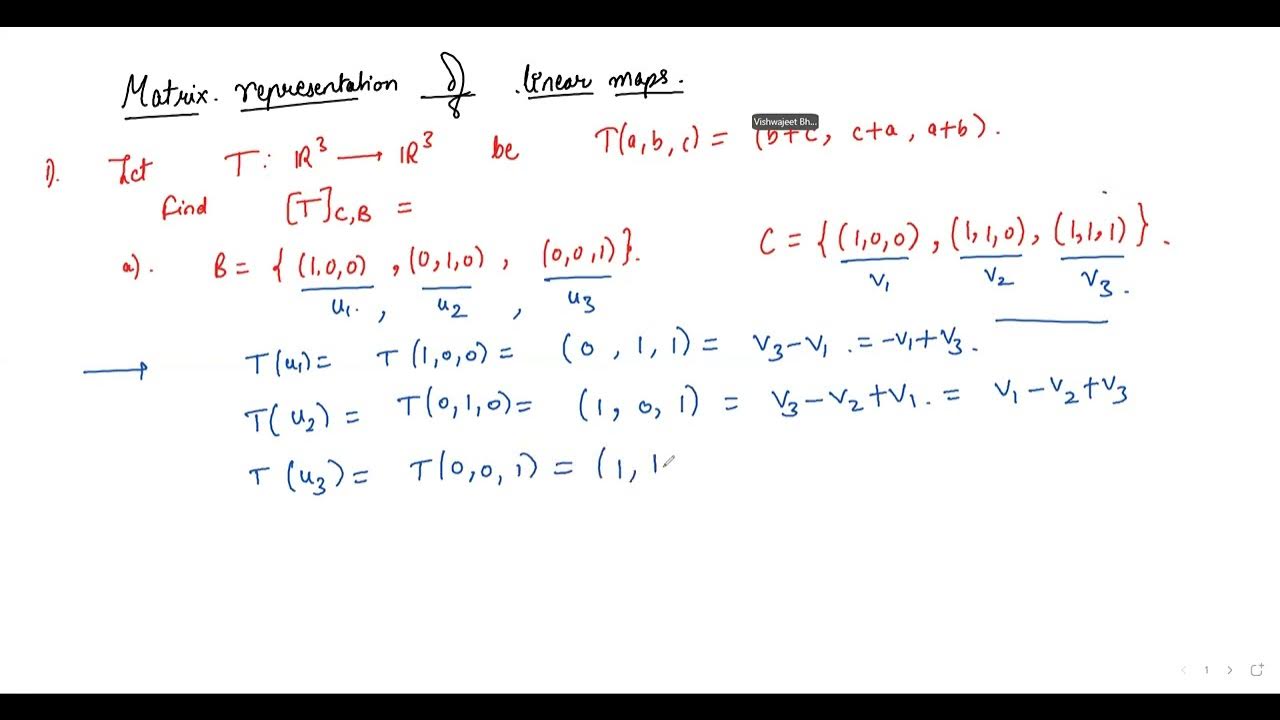 Matrix. representation of linear maps.
Vishwajeet Bh...
1). Let T: ℝ³ → ℝ³ be T(a,b,c) = (b+c, c+a, a+b).
find [T]C,B =
a). B = {(1,0,0), (0,1,0), (0,0,1)}. C = {(1,0,0), (1,1,0), (1,1,1)}.
u₁, u₂, u₃ v₁ v₂ v₃.
→ T(u₁) = T(1,0,0) = (0, 1, 1) = v₃-v₁. = -v₁+v₃.
T(u₂) = T(0,1,0) = (1, 0, 1) = v₃-v₂+v₁. = v₁-v₂+v₃
T(u₃) = T(0,0,1) = (1, 1
1